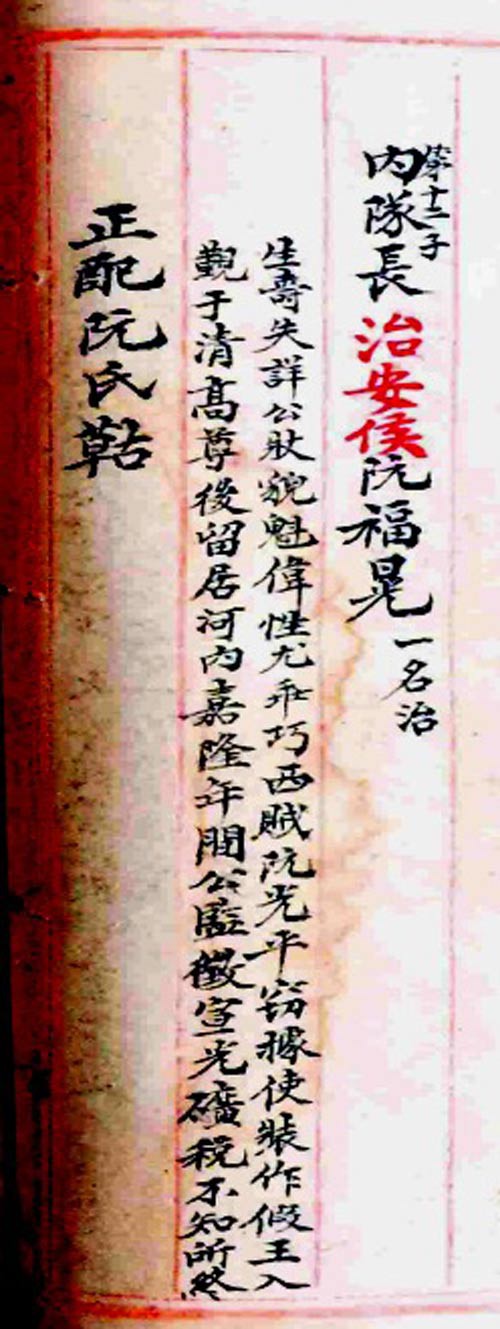 第十二子
內隊長治安侯阮福晃一名治
生壽失詳公狀貌魁偉性尤乖巧西賊阮光平竊據使裝作假王入
覲于清高尊後留居河內嘉隆年間公監徵宣光礦稅不知所終
正配阮氏𩋃